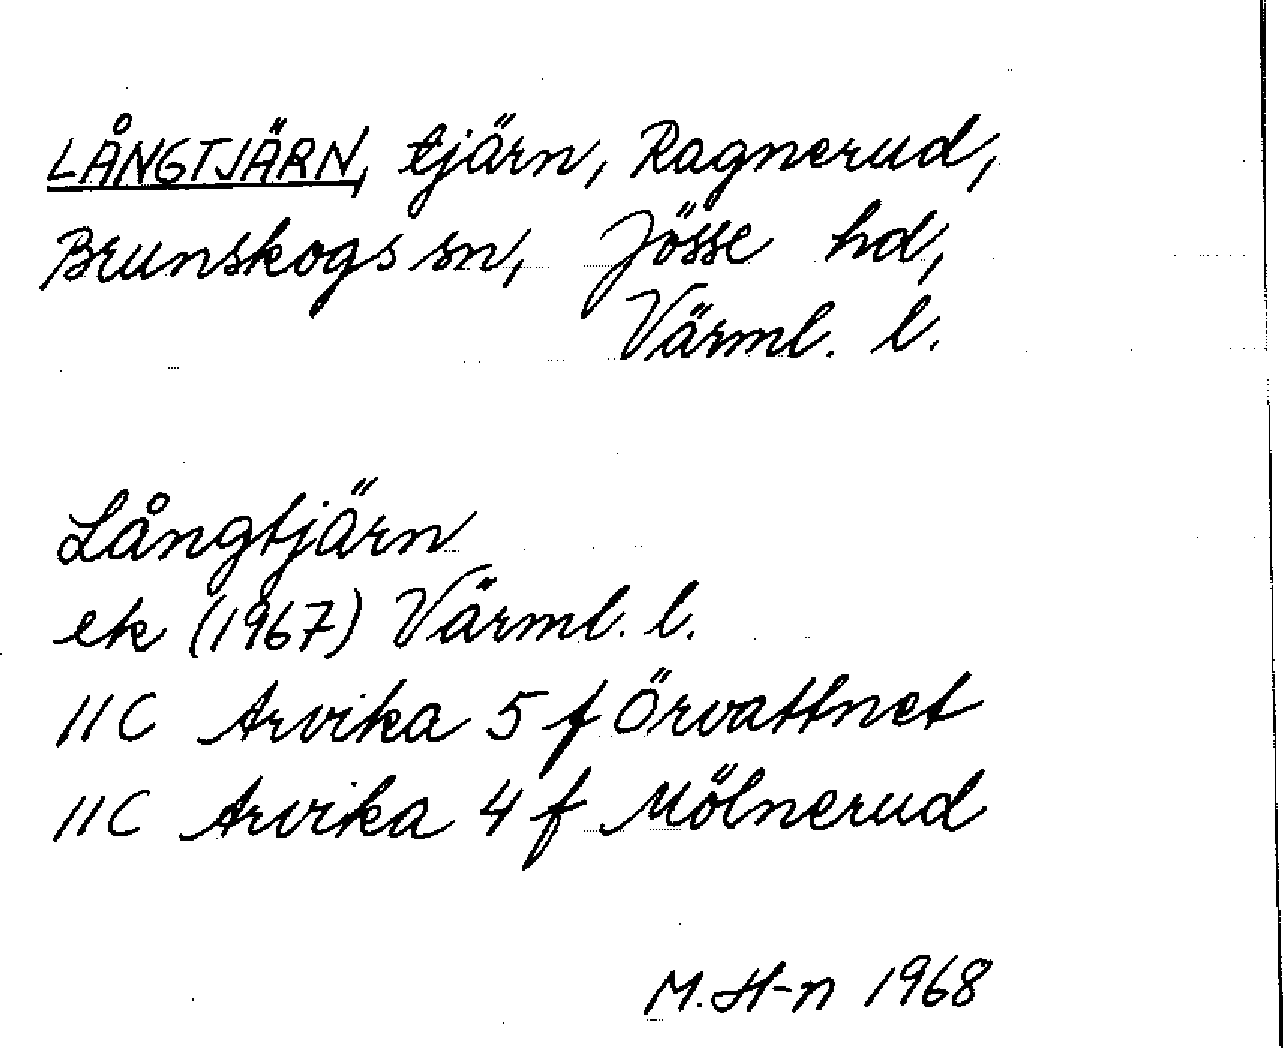 LÅNGTJÄRN, tjärn, Ragnerud,
Brunskogs sn, Jösse hd,
Värml. l.
Långtjärn
ek (1967) Värml. l.
11C Arvika 5f Örvattnet
11C Arvika 4f Mölnerud
M. H-n 1968